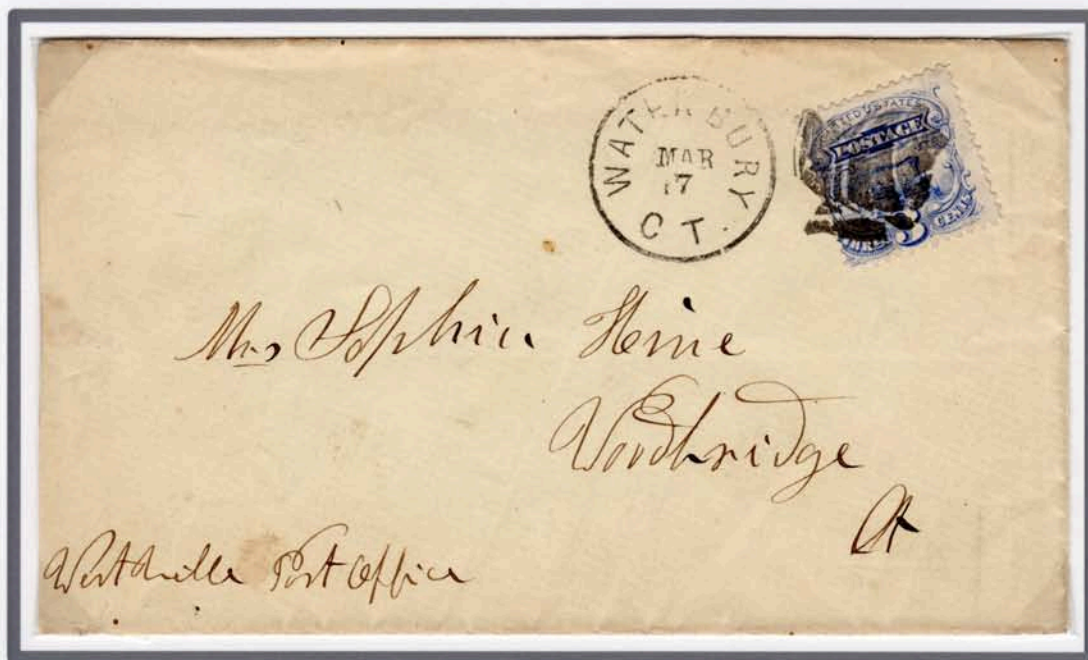 WATERBURY.
MAR
17
CT.
UNITED STATES
POSTAGE
3
CENTS
Mrs Sophia Heine
Woodbridge
Ct
Westville Post Office